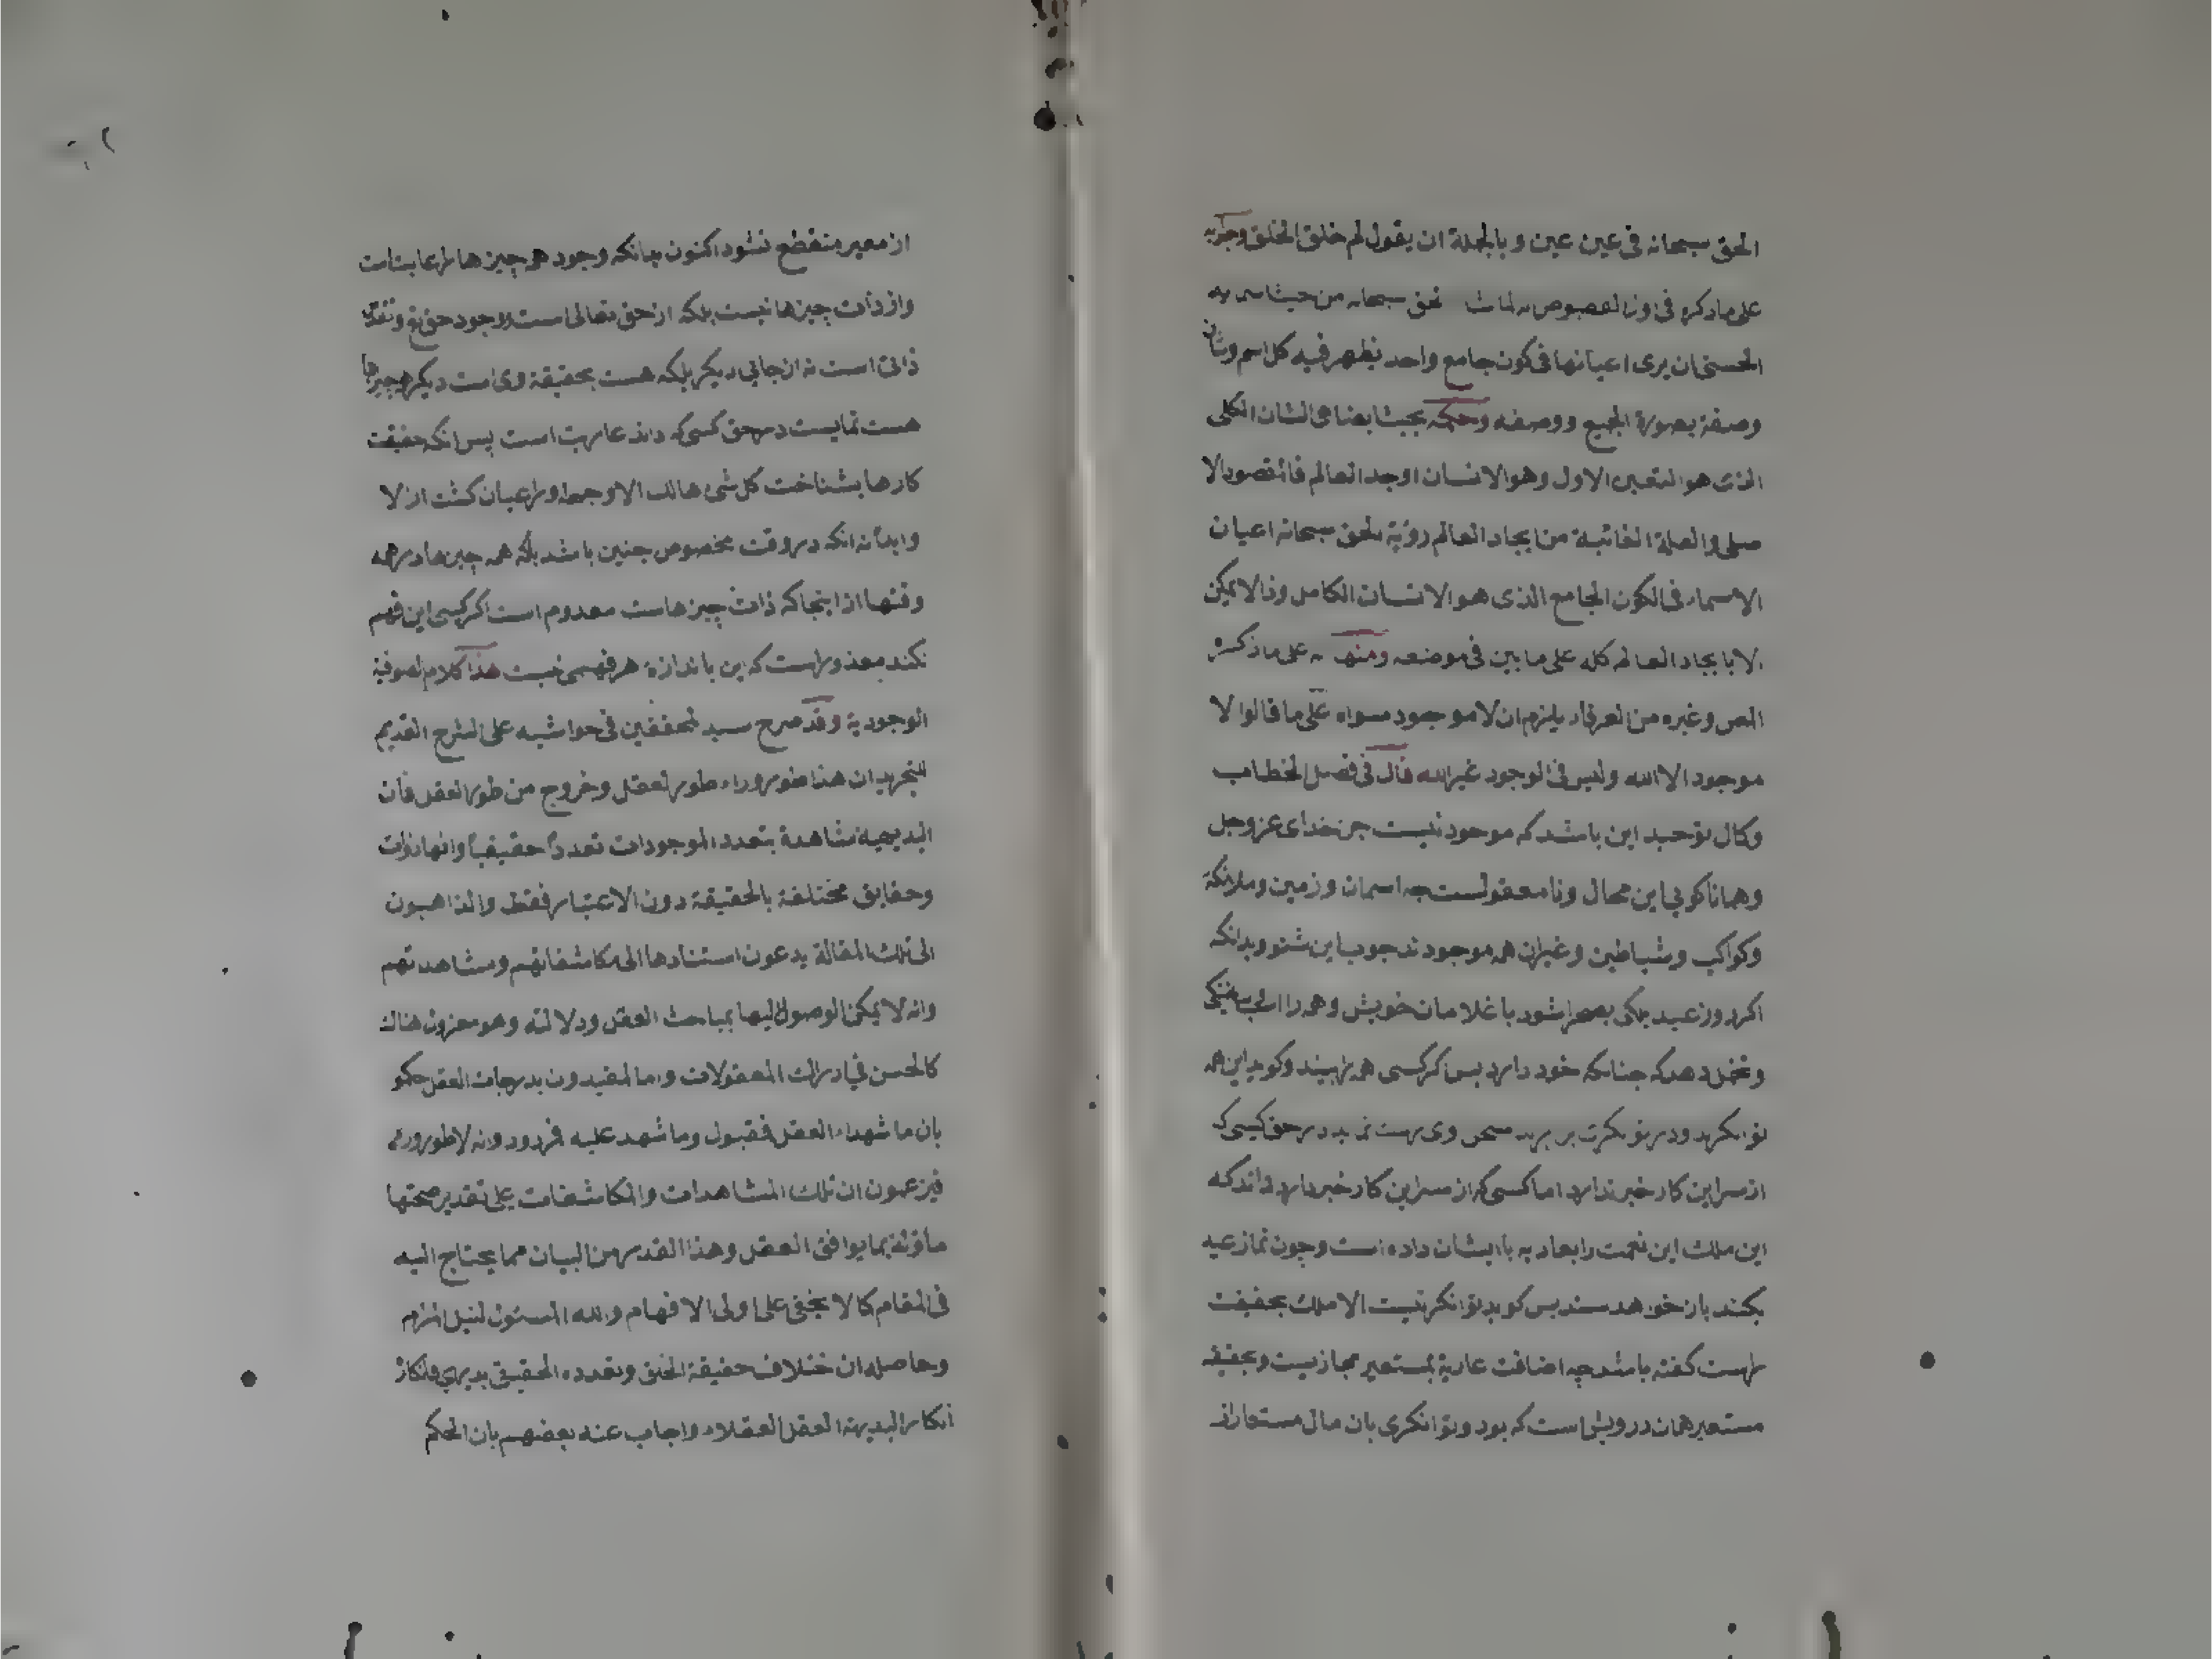 الحق سبحانه فى عين عين وبالجملة ان يقول لم خلق الخلق وجوابه
على ما ذكره فى اول الفصوص لما شاء الحق سبحانه من حيث اسمائه
الحسنى ان يرى اعيانها فى كون جامع واحد يظهر فيه كل اسم وشان
وصفة بصورة الجميع ووصفه وحكمه بحيث يضاهى الشان الكلى
الذى هو التعين الاول وهو الانسان اوجد العالم فالمقصود الا
صلى والعلة الغائية من ايجاد العالم رؤية الحق سبحانه اعيان
الاسماء فى الكون الجامع الذى هو الانسان الكامل وذا لا يمكن
الا بايجاد العالم كله على ما بين فى موضعه ومنها انه على ما ذكره
المص وغيره من العرفاء يلزم ان لا موجود سواه على ما قالوا لا
موجود الا الله وليس فى الوجود غير الله قال فى فصل الخطاب
وكال توحيد اين باشد كه موجود نيست جز خداى عز وجل
وهمانا كويى اين محال ونامعقولست چه اسمان وزمين وملائكة
وكواكب وشياطين وغيران همه موجودند جواب اين شنو وبدانكه
اكر روز عيد ملكى بصحرا شود با غلامان خويش وهمه را اسب
وتجمل دهد كه چنانكه خود دارد پس اكر كسى همه را بيند وكويد اين همه
توانكرند ودر توانكرى برابرند سخن وى راست نمايد در حق كسى كه
از سر اين كار خبر ندارد اما كسى كه از سر اين كار خبر دارد داند كه
اين ملك اين نعمت را بعاريه با ايشان داده است وچون نماز عيد
بكنند باز خواهد ستد پس كويد توانكر نيست الا ملك بحقيقت
راست كفته باشد چه اضافت عارية بمستعير مجازيست وبحقيقة
مستعير همان درويش است كه بود وتوانكرى بان مال مستعار از
از معير منقطع نشود اكنون بدانكه وجود همه چيزها را عاريتست
واز ذات چيزها نيست بلكه از حق تعالى است ووجود حق تع
ذاتى است نه از جايى ديكر بلكه هست بحقيقة وى است ديكر همه چيزها
هست نمايست در حق كسى كه داند عاريت است پس انكه حقيقت
كارها بشناخت كل شئ هالك الا وجهه او را عيان كشت ازلا
وابدا نه انكه در وقت مخصوص چنين باشد بلكه همه چيزها در همه
وقتها از اينجا كه ذات چيزهاست معدوم است اكر كسى اين فهم
نكند معذورست كه اين باندازه هر فهمى نيست هذا كلام الصوفية
الوجودية وقد صرح سيد المحققين فى حواشيه على الشرح القديم
للتجريد ان هذا طور وراء طور العقل وخروج من طور العقل فان
البديهية شاهدة بتعدد الموجودات تعددا حقيقيا وانها ذوات
وحقايق مختلفة بالحقيقة دون الاعتبار فقط والذاهبون
الى تلك المقالة يدعون استنادها الى مكاشفاتهم ومشاهدتهم
وانه لا يمكن الوصول اليها بمباحث العقل ودلالته وهو معزول هناك
كالحس فى ادراك المعقولات واما المقيدون بدرجات العقل حكموا
بان ما شهد له العقل فمقبول وما شهد عليه فمردود وانه لا طور وراءه
فيزعمون ان تلك المشاهدات والمكاشفات على تقدير صحتها
مأولة بما يوافق العقل وهذا القدر من البيان مما يحتاج اليه
فى المقام كما لا يخفى على اولى الافهام والله المسئول لنيل المرام
وحاصله ان خلاف حقيقة الخلق وتعدده الحقيقى بديهى فانكاره
انكار البديهة العقل العقلاء واجاب عنه بعضهم بان الحكم